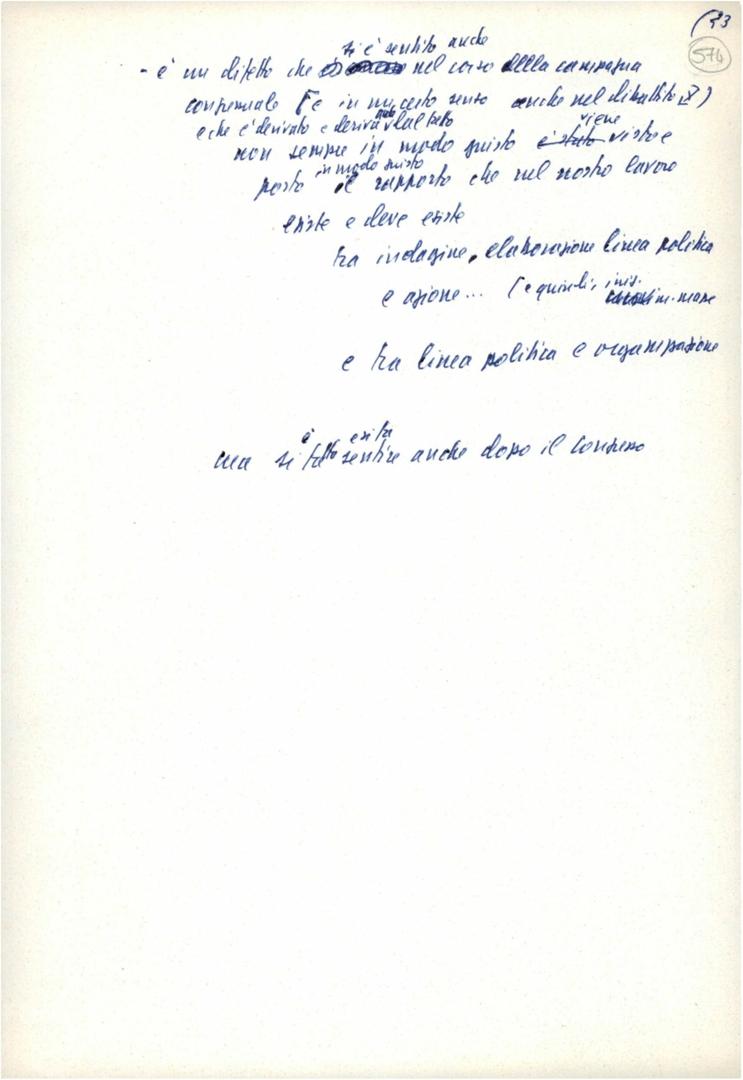 33
574
si è sentito anche
- è un difetto che nel corso della campagna
congressuale (e in un certo senso anche nel dibattito)
e che è derivato e deriva dal fatto
viene
non sempre in modo giusto è stato visto e
in modo giusto
posto il rapporto che nel nostro lavoro
esiste e deve esiste
tra indagine, elaborazione linea politica
e azione... (e quindi,
e tra linea politica e organizzazione
è
ma si fatto sentire anche dopo il congresso